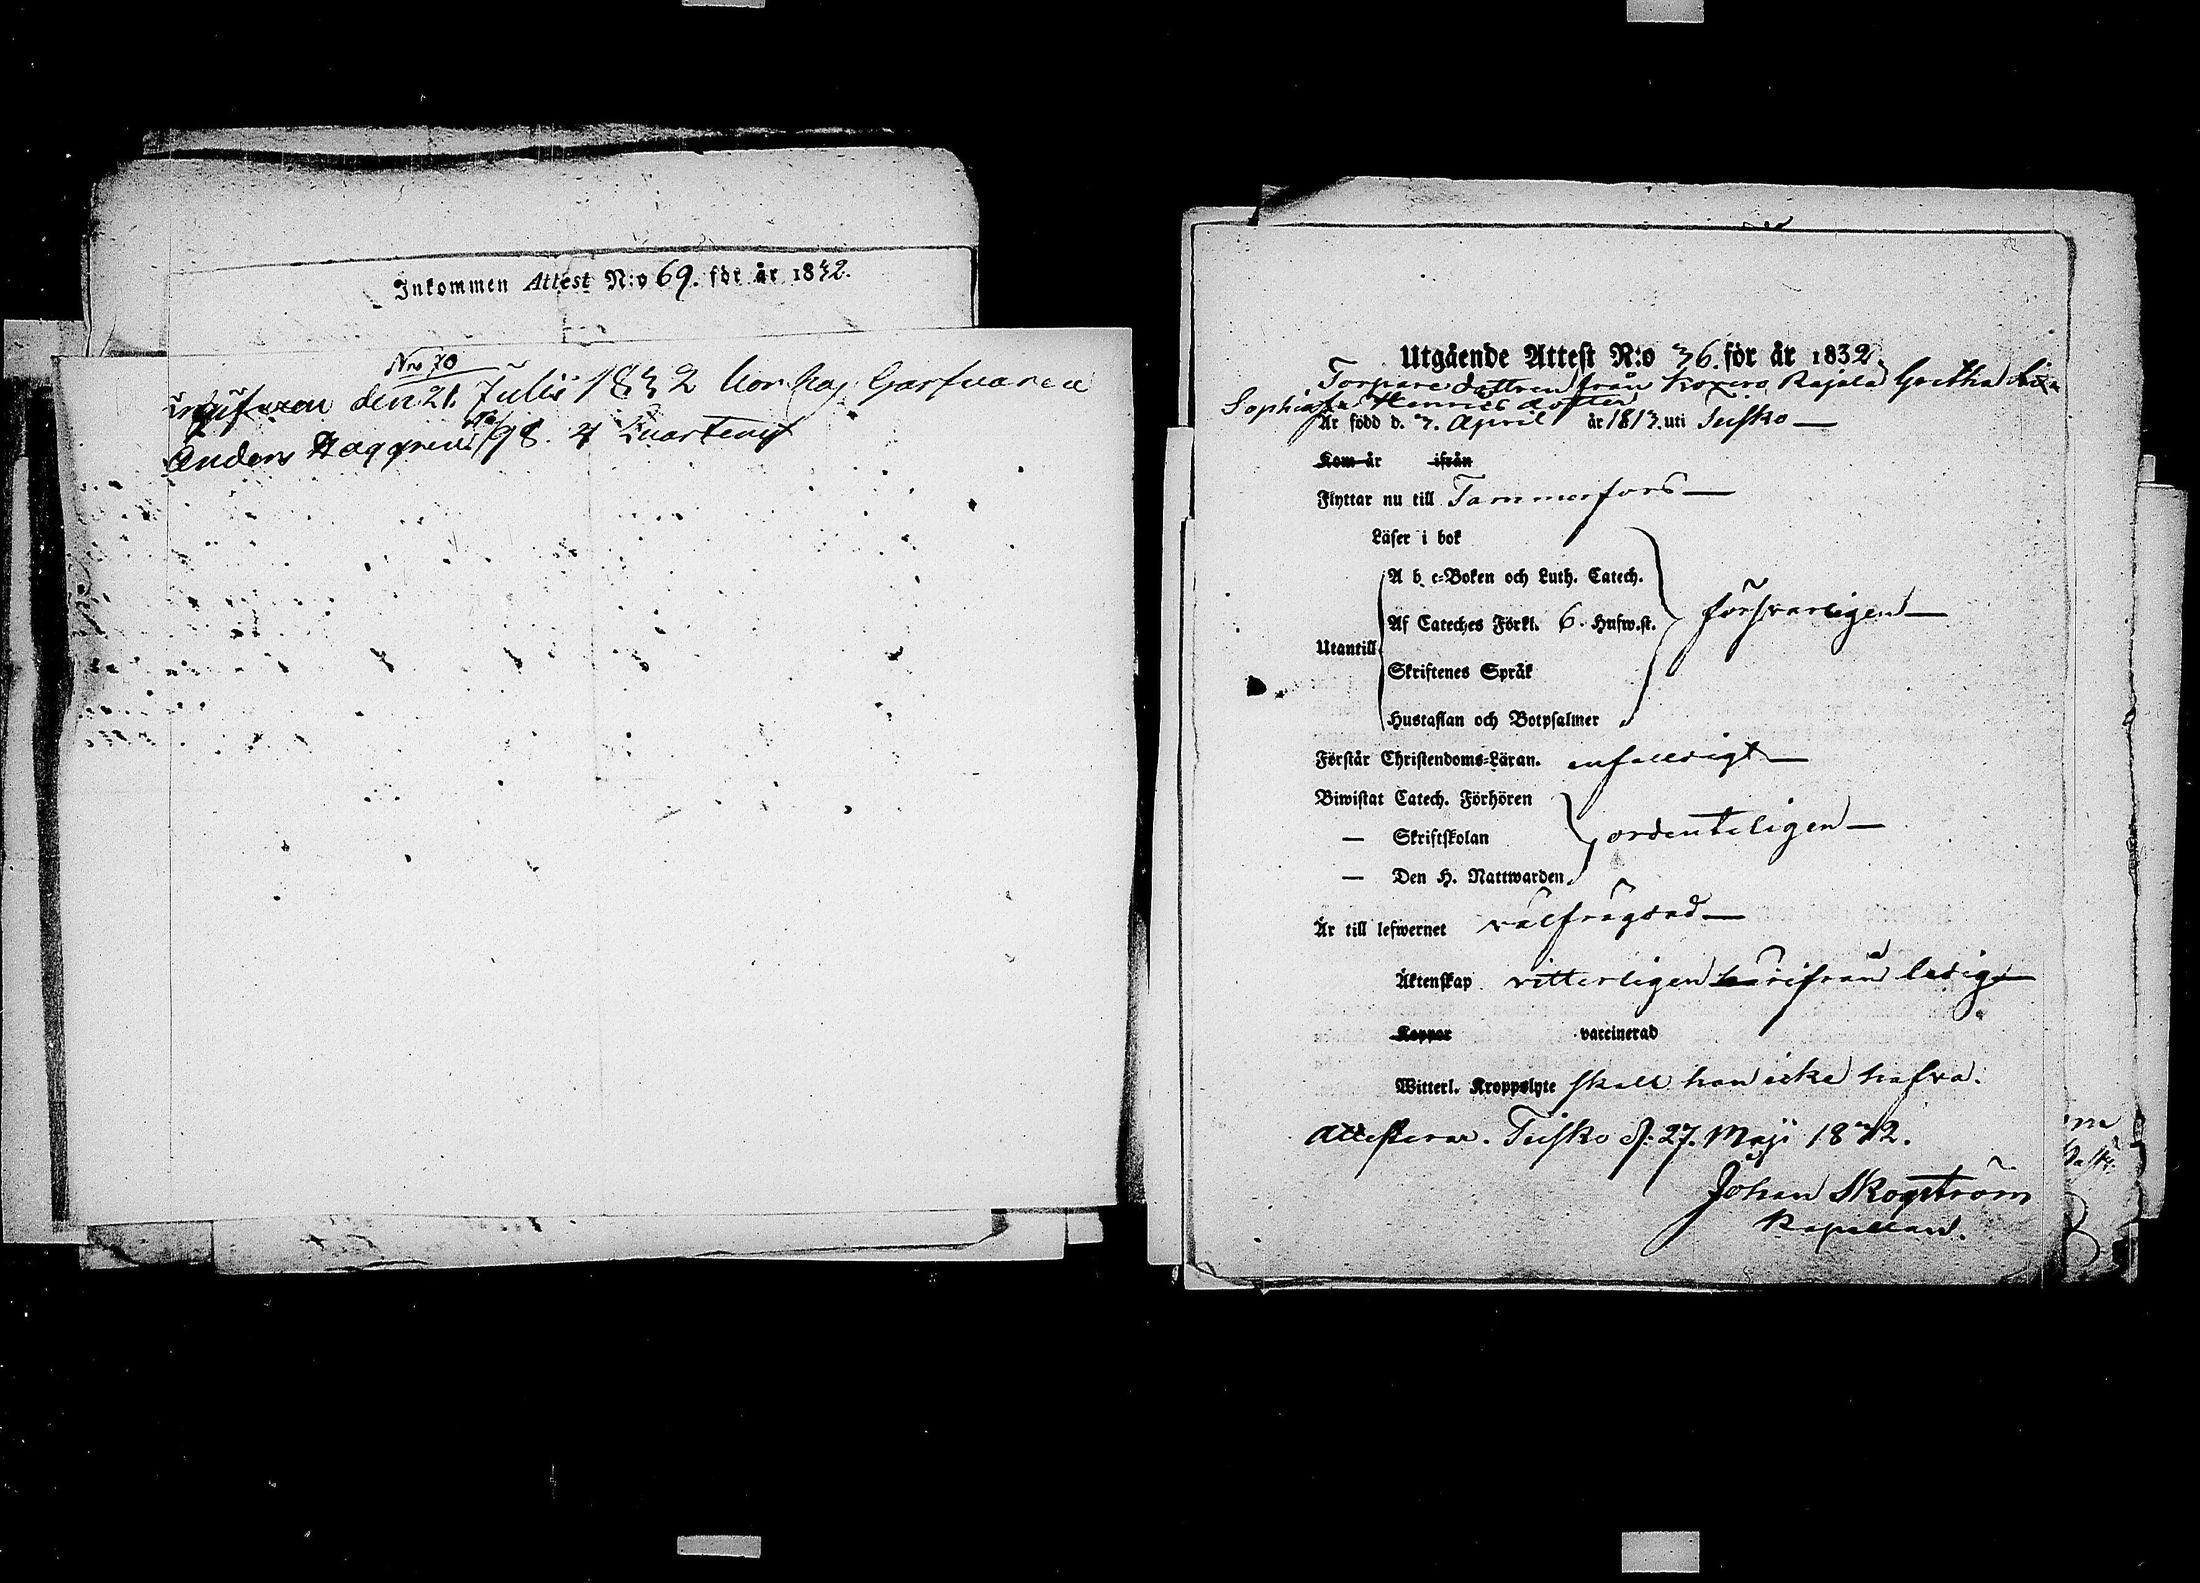 Inkommen Attest N:o 69. för år 1832.
Nro 70
den 21. Julii 1832 hos Garfvaren
Anders Haggren 98. 4 Quarteret
Utgående Attest N:o 36. för år 1832
Torpare dottren från Koxero Rajala Gretha Lisa
Sophia Henrics dotter
Är född d. 3. April år 1813. uti Teisko
Kom år ifrån
Flyttar nu till Tammerfors
Läser i bok
A b c-Boken och Luth. Catech.
Af Cateches Förkl. 6. Hufw.st.
försvarligen
Utantill
Skriftenes Språk
Hustaflan och Botpsalmer
Förstår Christendoms-Läran. enfalldigt
Biwistat Catech. Förhören
— Skriftskolan ordenteligen
— Den H. Nattwarden
Är till lefwernet välfrägdad
Äktenskap vitterligen härifrån ledig
Koppor vaccinerad
Witterl. Kroppslyte skall hon icke hafva.
Attesterar. Teisko d. 27. Maji 1832.
Johan Skogström
Kapellan.